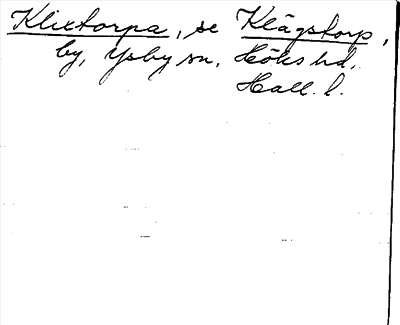 Klixtorpa, se Klägstorp,
by, Ysby sn, Höks hd,
Hall. l.